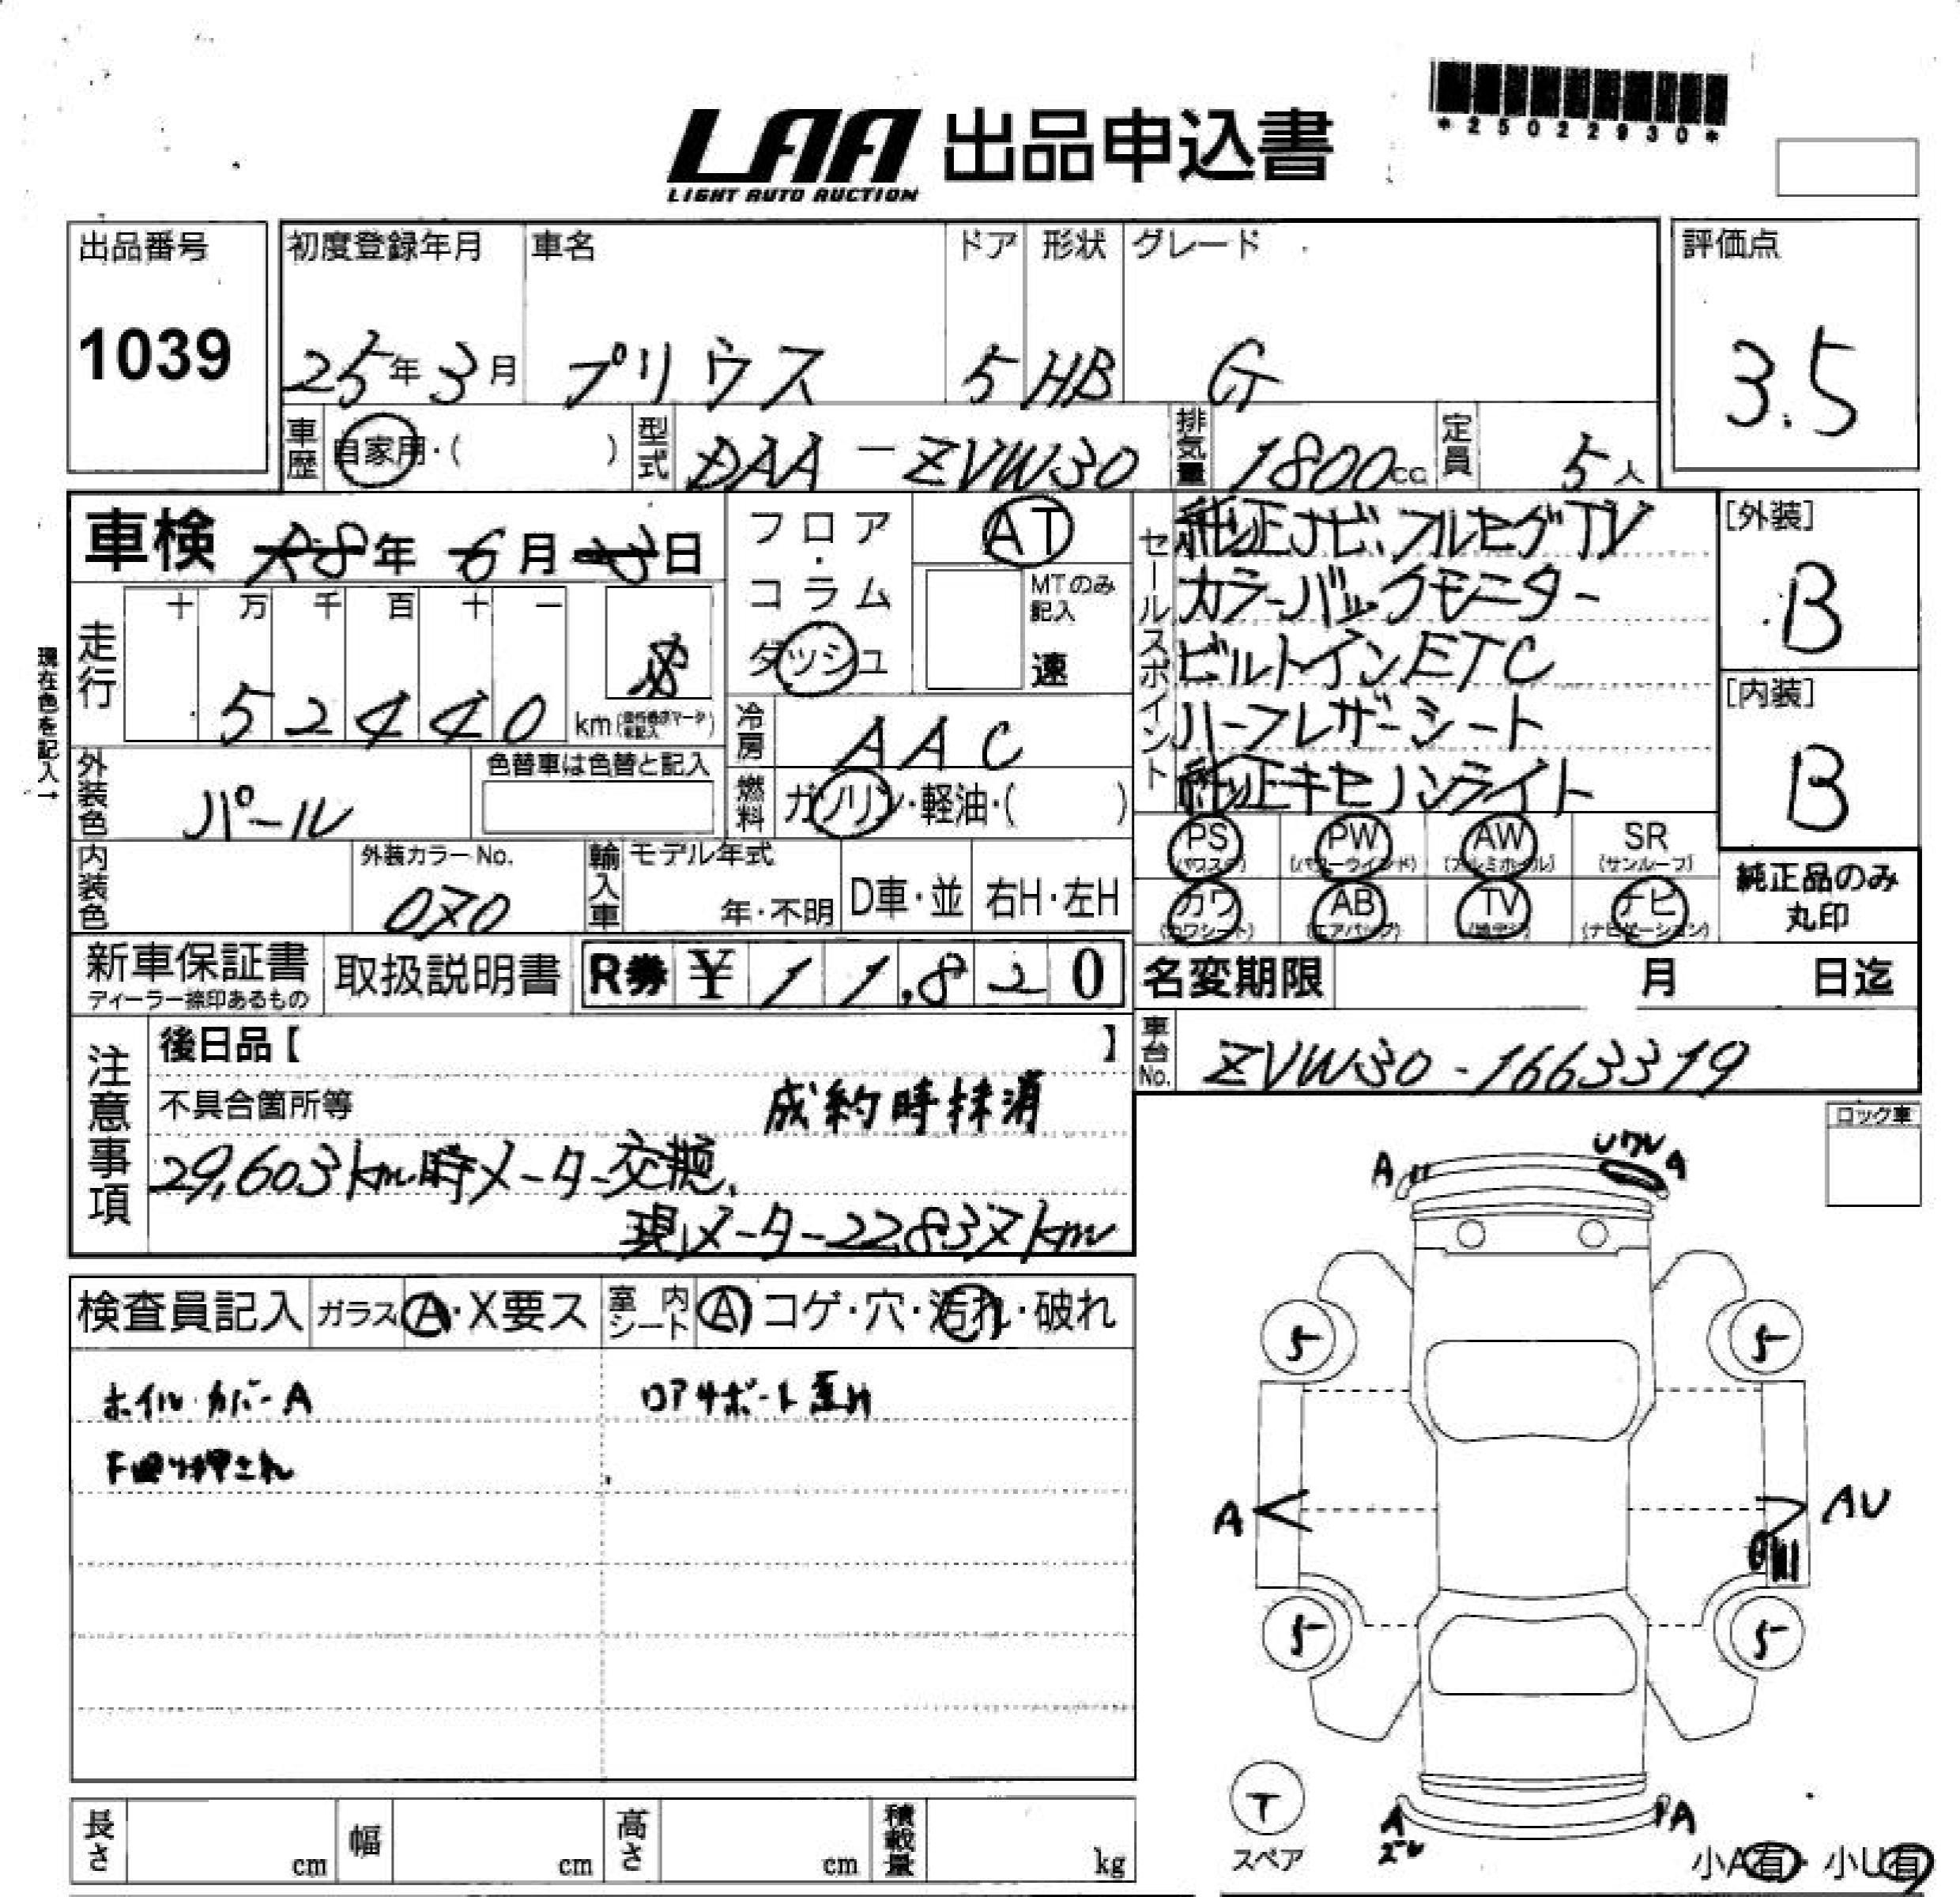 LAA 出品申込書
LIGHT AUTO AUCTION
*25022930*
出品番号
1039
初度登録年月 車名 ドア 形状 グレード
25年3月 プリウス 5 HB G
評価点
3.5
車歴 自家用・( ) 型式 DAA-ZVW30 排気量 1800cc 定員 5人
車検 年 6月 日
フロア・コラム ダッシュ
AT
MTのみ記入
速
セールスポイント
純正ナビ、フルセグTV
カラーバックモニター
ビルトインETC
ハーフレザーシート
純正キセノンライト
[外装]
B
[内装]
B
現在色を記入→
走行 十 万 千 百 十 一
52440 km
冷房 AAC
燃料 ガソリン・軽油・( )
外装色 パール 色替車は色替と記入
内装色 外装カラーNo. 070
輸入車 モデル年式 年・不明 D車・並 右H・左H
PS (パワステ) PW (パワーウインド) AW (アルミホイル) SR (サンルーフ)
カワ (カワシート) AB (エアバック) TV ナビ (ナビゲーション)
純正品のみ丸印
新車保証書 ディーラー捺印あるもの 取扱説明書 R券 ¥11,820
名変期限 月 日迄
車台No. ZVW30-1663319
注意事項
後日品【 】
不具合箇所等 成約時抹消
29,603km時メーター交換、
現メーター22,837km
ロック車
検査員記入 ガラス A・X要ス 室内シート A コゲ・穴・汚れ・破れ
ホイル・カバーA ロアサポート歪み
F廻り押され
A
ワレ A
5 5
A AU
5 5
T
スペア
A
A
小A有・小U有
長さ cm 幅 cm 高さ cm 積載量 kg